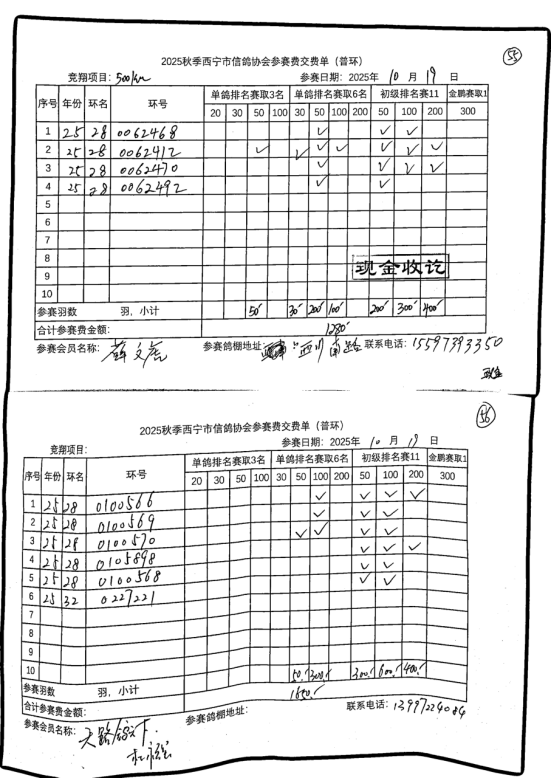 55
2025秋季西宁市信鸽协会参赛费交费单（普环）
竞翔项目：500km 参赛日期：2025年 10 月 19 日
序号 年份 环名 环号 单鸽排名赛取3名 单鸽排名赛取6名 初级排名赛11 金鹏赛取1
20 30 50 100 30 50 100 200 50 100 200 300
1 25 28 0062468 ✓ ✓ ✓
2 25 28 0062412 ✓ ✓ ✓ ✓ ✓ ✓ ✓
3 25 28 0062470 ✓ ✓ ✓ ✓
4 25 28 0062492 ✓ ✓
5
6
7
8
现金收讫
9
10
参赛羽数 羽，小计 50 30 200 100 200 300 400
合计参赛费金额： 1280
参赛会员名称： 薛文虎 参赛鸽棚地址： 四川南路 联系电话：15597393350
现金
56
2025秋季西宁市信鸽协会参赛费交费单（普环）
竞翔项目： 参赛日期：2025年 10 月 19 日
序号 年份 环名 环号 单鸽排名赛取3名 单鸽排名赛取6名 初级排名赛11 金鹏赛取1
20 30 50 100 30 50 100 200 50 100 200 300
1 25 28 0100566 ✓ ✓ ✓ ✓
2 25 28 0100569 ✓ ✓ ✓
3 25 28 0100570 ✓ ✓ ✓ ✓
4 25 28 0105898 ✓ ✓ ✓
5 25 28 0100568 ✓ ✓
6 25 32 0227221 ✓ ✓
7
8
9
10
参赛羽数 羽，小计 50 300 300 600 400
合计参赛费金额： 1650
参赛会员名称： 参赛鸽棚地址： 联系电话：13997224084